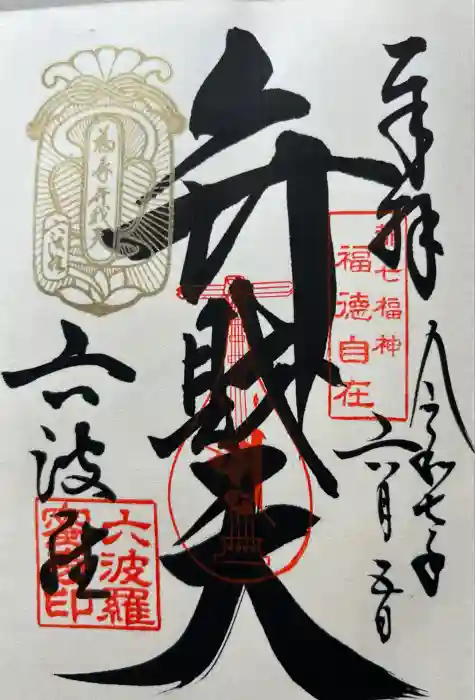 奉拝
都七福神
福徳自在
令和七年
六月五日
弁財天
福寿弁財天
六波羅
六波羅
蜜寺印